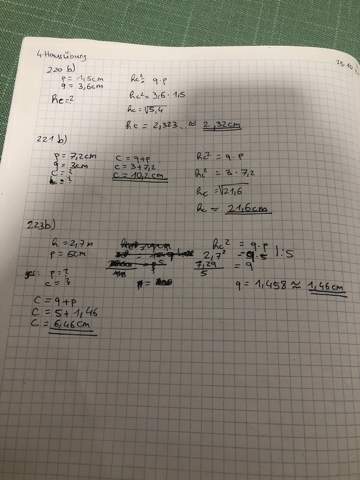 4. Hausübung
25.10
220 b)
p = 1,5cm
q = 3,6cm
hc = ?
hc² = q · p
hc² = 3,6 · 1,5
hc = √5,4
hc = 2,323.. ≈ 2,32cm
221 b)
p = 7,2cm
q = 3cm
c = ?
h = ?
c = q+p
c = 3+7,2
c = 10,2cm
hc² = q · p
hc² = 3 · 7,2
hc = √21,6
hc = 21,6cm
223b)
h = 2,7m
p = 5cm
ges: p = ?
c = ?
hc² = q · p
2,7² = q · 5 | : 5
7,29/5 = q
q = 1,458 ≈ 1,46cm
c = q+p
c = 5 + 1,46
c = 6,46cm